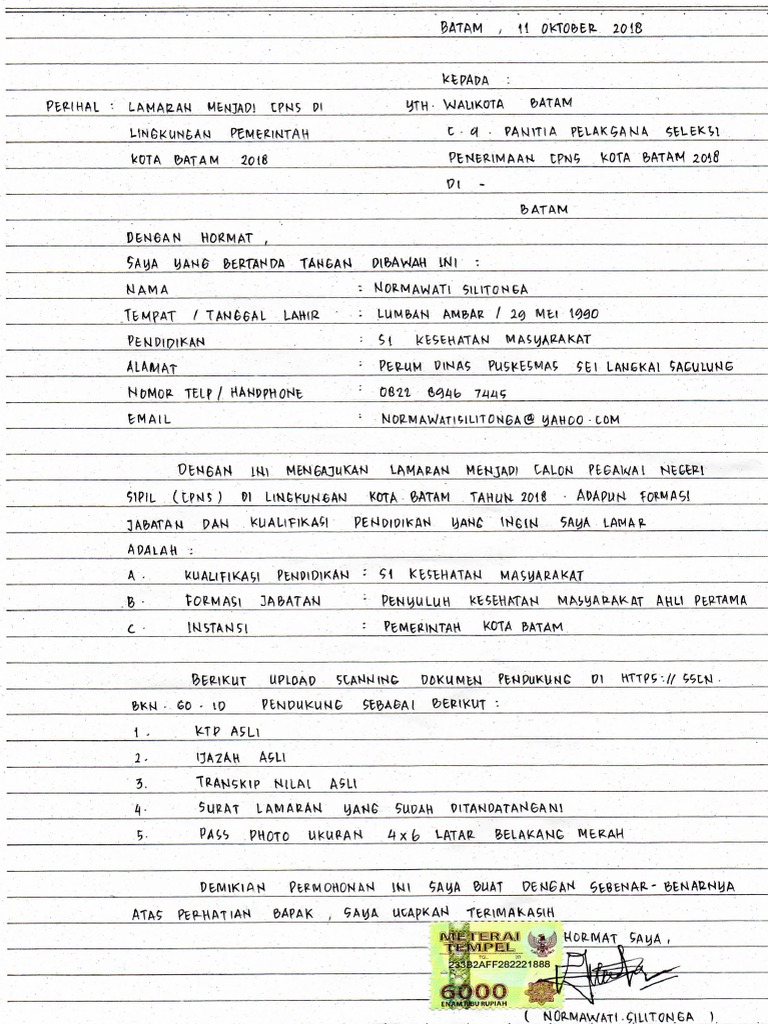 BATAM , 11 OKTOBER 2018
KEPADA :
PERIHAL : LAMARAN MENJADI CPNS DI YTH. WALIKOTA BATAM
LINGKUNGAN PEMERINTAH C.q. PANITIA PELAKSANA SELEKSI
KOTA BATAM 2018 PENERIMAAN CPNS KOTA BATAM 2018
DI -
BATAM
DENGAN HORMAT ,
SAYA YANG BERTANDA TANGAN DIBAWAH INI :
NAMA : NORMAWATI SILITONGA
TEMPAT / TANGGAL LAHIR : LUMBAN AMBAR / 29 MEI 1990
PENDIDIKAN : S1 KESEHATAN MASYARAKAT
ALAMAT : PERUM DINAS PUSKESMAS SEI LANGKAI SAGULUNG
NOMOR TELP / HANDPHONE : 0822 8946 7445
EMAIL : NORMAWATISILITONGA@YAHOO.COM
DENGAN INI MENGAJUKAN LAMARAN MENJADI CALON PEGAWAI NEGERI
SIPIL (CPNS) DI LINGKUNGAN KOTA BATAM TAHUN 2018 . ADAPUN FORMASI
JABATAN DAN KUALIFIKASI PENDIDIKAN YANG INGIN SAYA LAMAR
ADALAH :
A. KUALIFIKASI PENDIDIKAN : S1 KESEHATAN MASYARAKAT
B. FORMASI JABATAN : PENYULUH KESEHATAN MASYARAKAT AHLI PERTAMA
C. INSTANSI : PEMERINTAH KOTA BATAM
BERIKUT UPLOAD SCANNING DOKUMEN PENDUKUNG DI HTTPS://SSCN.
BKN.GO.ID PENDUKUNG SEBAGAI BERIKUT :
1. KTP ASLI
2. IJAZAH ASLI
3. TRANSKIP NILAI ASLI
4. SURAT LAMARAN YANG SUDAH DITANDATANGANI
5. PASS PHOTO UKURAN 4x6 LATAR BELAKANG MERAH
DEMIKIAN PERMOHONAN INI SAYA BUAT DENGAN SEBENAR-BENARNYA
ATAS PERHATIAN BAPAK , SAYA UCAPKAN TERIMAKASIH
HORMAT SAYA,
METERAI
TEMPEL
233B2AFF282221888
6000
ENAM RIBU RUPIAH
( NORMAWATI.SILITONGA )